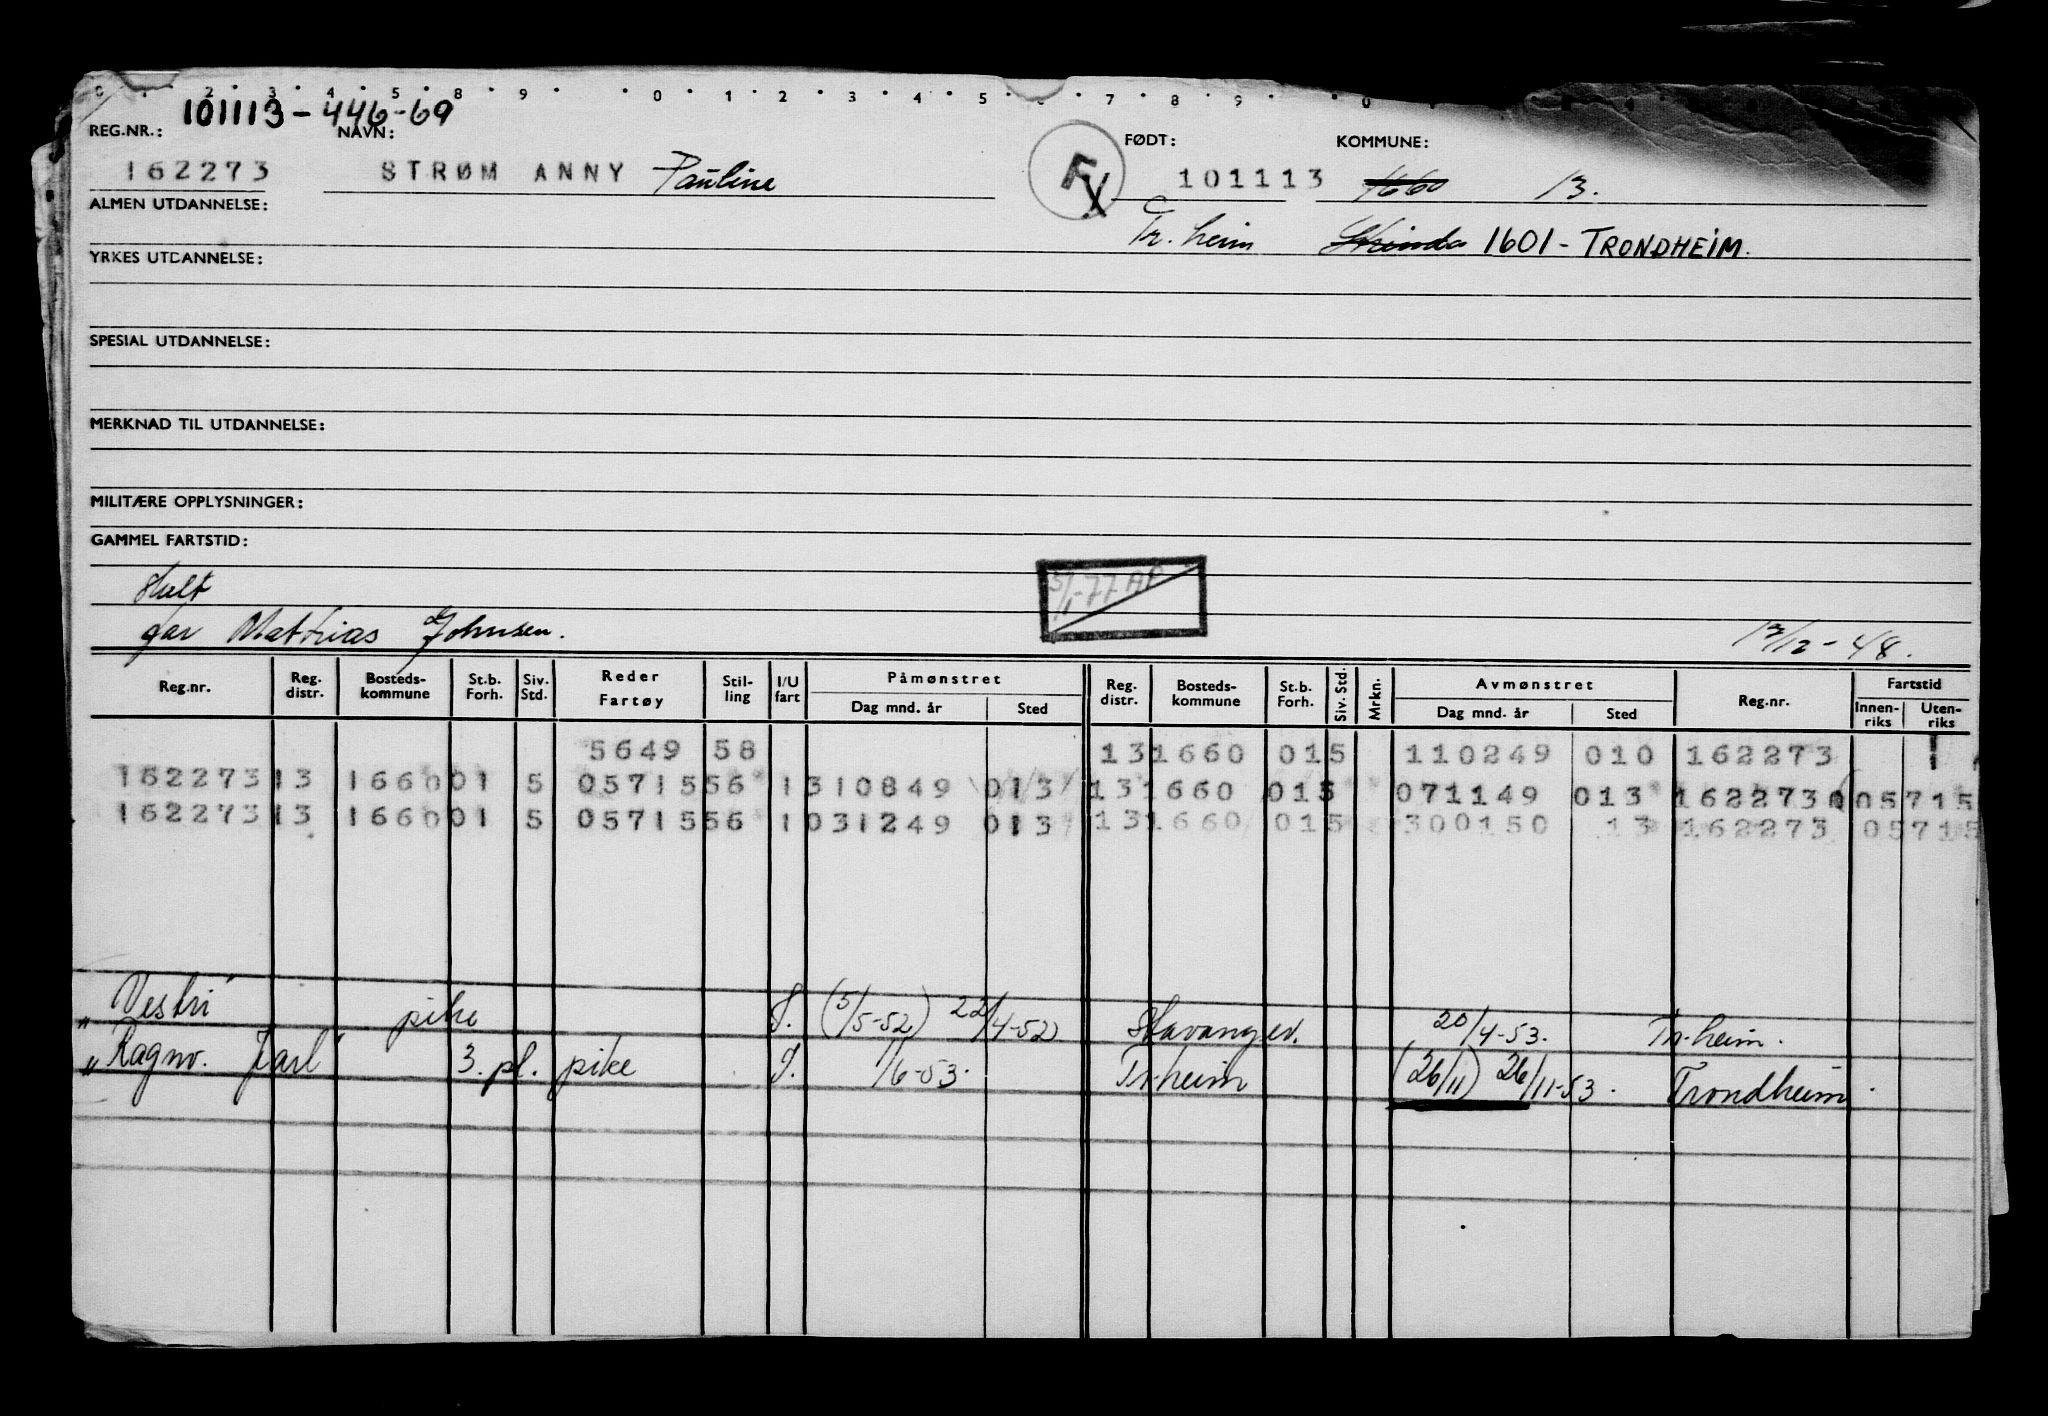 0 1 · 2 · 3 · 4 · 5 · 8 · 9 · · 0 · 1 · 2 · 3 · 4 · 5 · 6 · 7 · 8 · 9 · · 0
101113-446-69
REG.NR.: NAVN: FØDT: KOMMUNE:
162273 STRØM ANNY Pauline F 101113 1660 13.
ALMEN UTDANNELSE: Tr.heim Strinda 1601-TRONDHEIM.
YRKES UTDANNELSE:
SPESIAL UTDANNELSE:
MERKNAD TIL UTDANNELSE:
MILITÆRE OPPLYSNINGER:
GAMMEL FARTSTID:
5/1-77 AP
far Mattias Johnsen. 13/12-48.
Reg.nr. Reg. distr. Bosteds-kommune St.b. Forh. Siv. Std. Reder Fartøy Stil-ling I/U fart Påmønstret Dag mnd. år Sted Reg. distr. Bosteds-kommune St.b. Forh. Siv. Std. Mrkn. Avmønstret Dag mnd. år Sted Reg.nr. Fartstid Innen-riks Uten-riks
5649 58 13 1660 01 5 110249 010 162273 1
162273 13 1660 01 5 05715 56 1 310849 013 13 1660 01 5 071149 013 162273 05715
162273 13 1660 01 5 05715 56 1 031249 013 13 1660 01 5 300150 13 162273 05715
"Vestri" pike (5/5-52) 22/4-52 Stavanger. 20/4-53. Tr.heim.
"Ragnv. Jarl" 3. pl. pike 1/6-53. Tr.heim (26/11) 26/11-53. Trondheim.